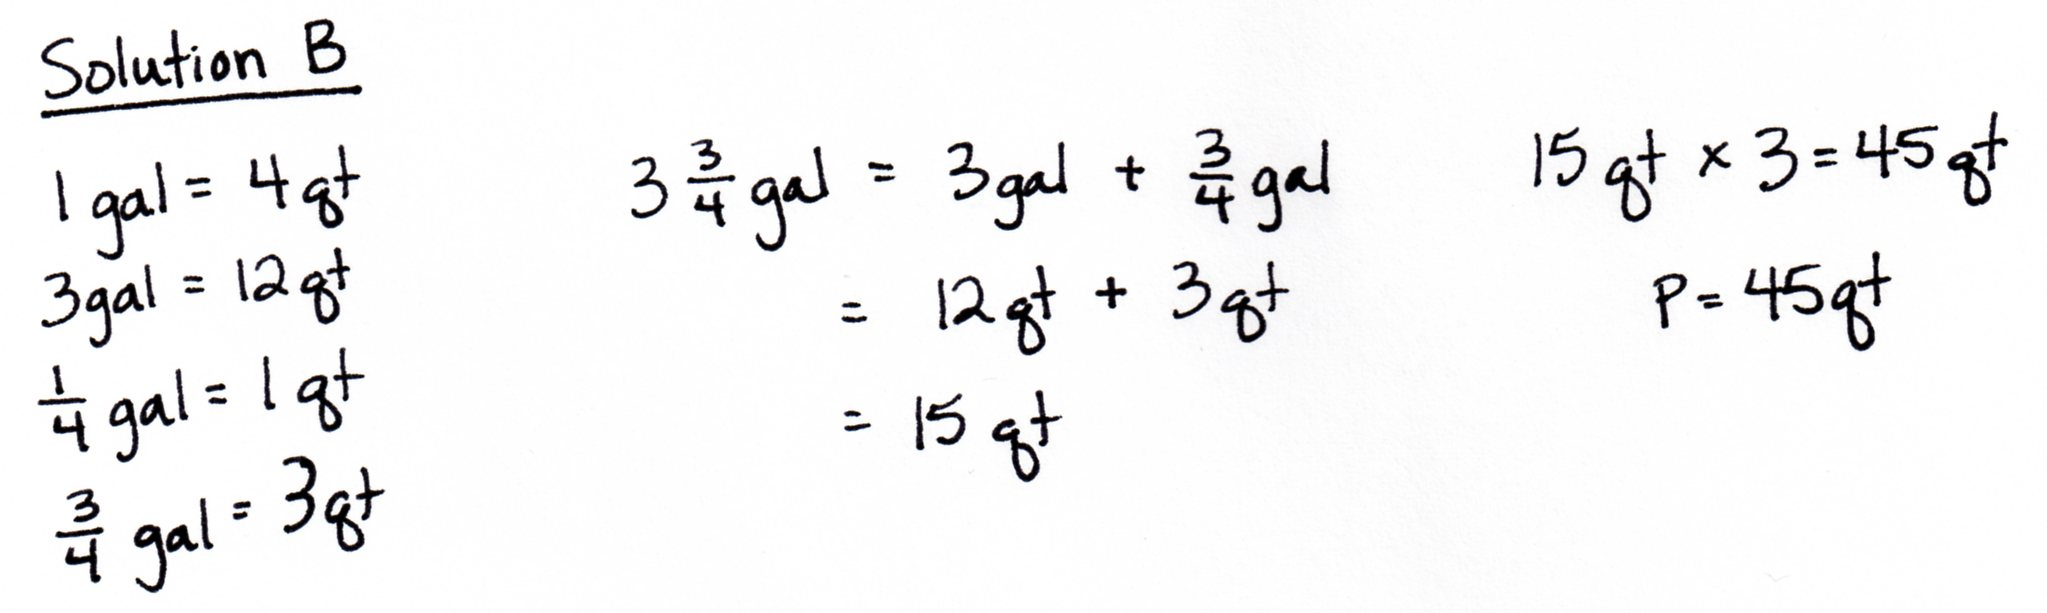 Solution B
1 gal = 4 qt
3 gal = 12 qt
1/4 gal = 1 qt
3/4 gal = 3 qt
3 3/4 gal = 3 gal + 3/4 gal
= 12 qt + 3 qt
= 15 qt
15 qt × 3 = 45 qt
P = 45 qt